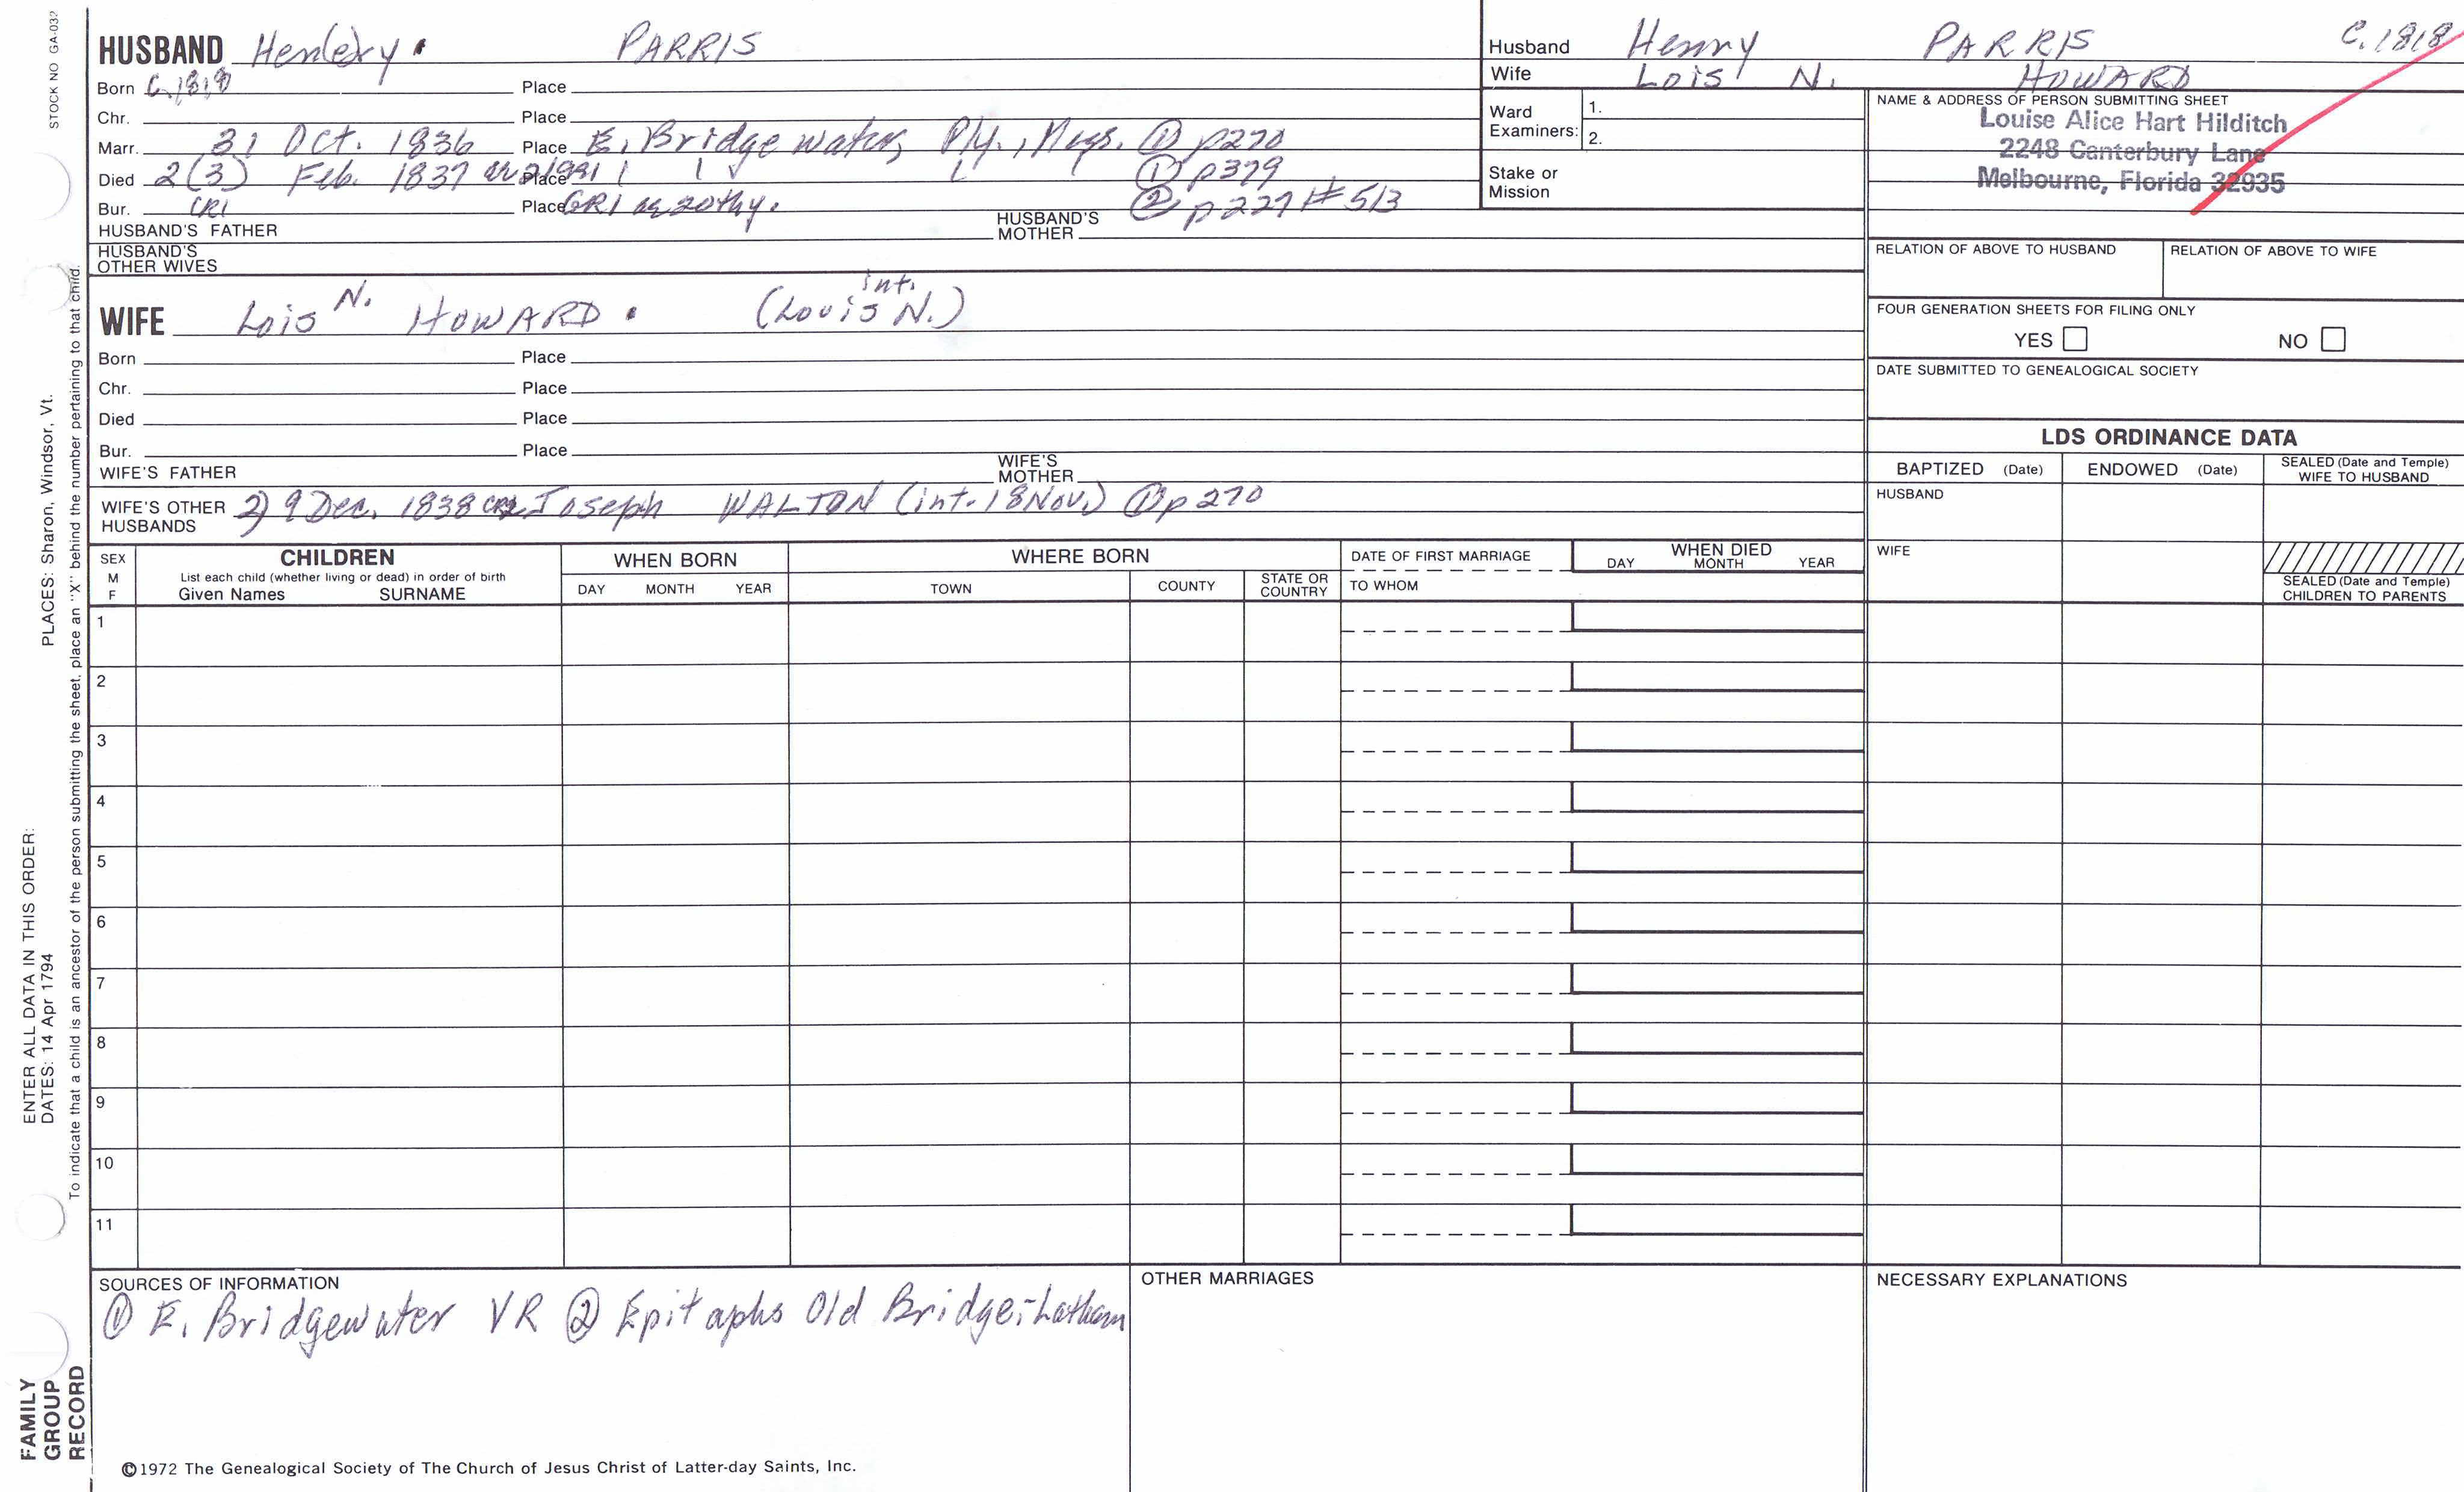 STOCK NO GA-032
HUSBAND Hen(e)ry. PARRIS
Husband Henry PARRIS C.1818
Wife Lois N. HOWARD
Born C.1818 Place
Chr. Place
Marr. 31 Oct. 1836 Place E. Bridgewater, Ply., ① p270
Died 2(3) Feb. 1837 Place ① p379
Bur. CR1 Place GR1 ② p227 #513
HUSBAND'S FATHER HUSBAND'S MOTHER
HUSBAND'S OTHER WIVES
Ward Examiners: 1.
2.
Stake or Mission
NAME & ADDRESS OF PERSON SUBMITTING SHEET
Louise Alice Hart Hilditch
2248 Canterbury Lane
Melbourne, Florida 32935
RELATION OF ABOVE TO HUSBAND RELATION OF ABOVE TO WIFE
FOUR GENERATION SHEETS FOR FILING ONLY
YES NO
DATE SUBMITTED TO GENEALOGICAL SOCIETY
int.
WIFE Lois N. HOWARD. (Louis N.)
Born Place
Chr. Place
Died Place
Bur. Place
WIFE'S FATHER WIFE'S MOTHER
WIFE'S OTHER HUSBANDS 2) 9 Dec. 1838 Joseph WALTON (int. 18 Nov.) ① p270
LDS ORDINANCE DATA
BAPTIZED (Date) ENDOWED (Date) SEALED (Date and Temple) WIFE TO HUSBAND
HUSBAND
WIFE
SEALED (Date and Temple) CHILDREN TO PARENTS
SEX M F
CHILDREN
List each child (whether living or dead) in order of birth
Given Names SURNAME
WHEN BORN
DAY MONTH YEAR
WHERE BORN
TOWN COUNTY STATE OR COUNTRY
DATE OF FIRST MARRIAGE
TO WHOM
WHEN DIED
DAY MONTH YEAR
1
2
3
4
5
6
7
8
9
10
11
SOURCES OF INFORMATION
① E. Bridgewater VR ② Epitaphs Old Bridge.-Latham
OTHER MARRIAGES
NECESSARY EXPLANATIONS
©1972 The Genealogical Society of The Church of Jesus Christ of Latter-day Saints, Inc.
FAMILY
GROUP
RECORD
ENTER ALL DATA IN THIS ORDER:
DATES: 14 Apr 1794 PLACES: Sharon, Windsor, Vt.
To indicate that a child is an ancestor of the person submitting the sheet, place an "X" behind the number pertaining to that child.